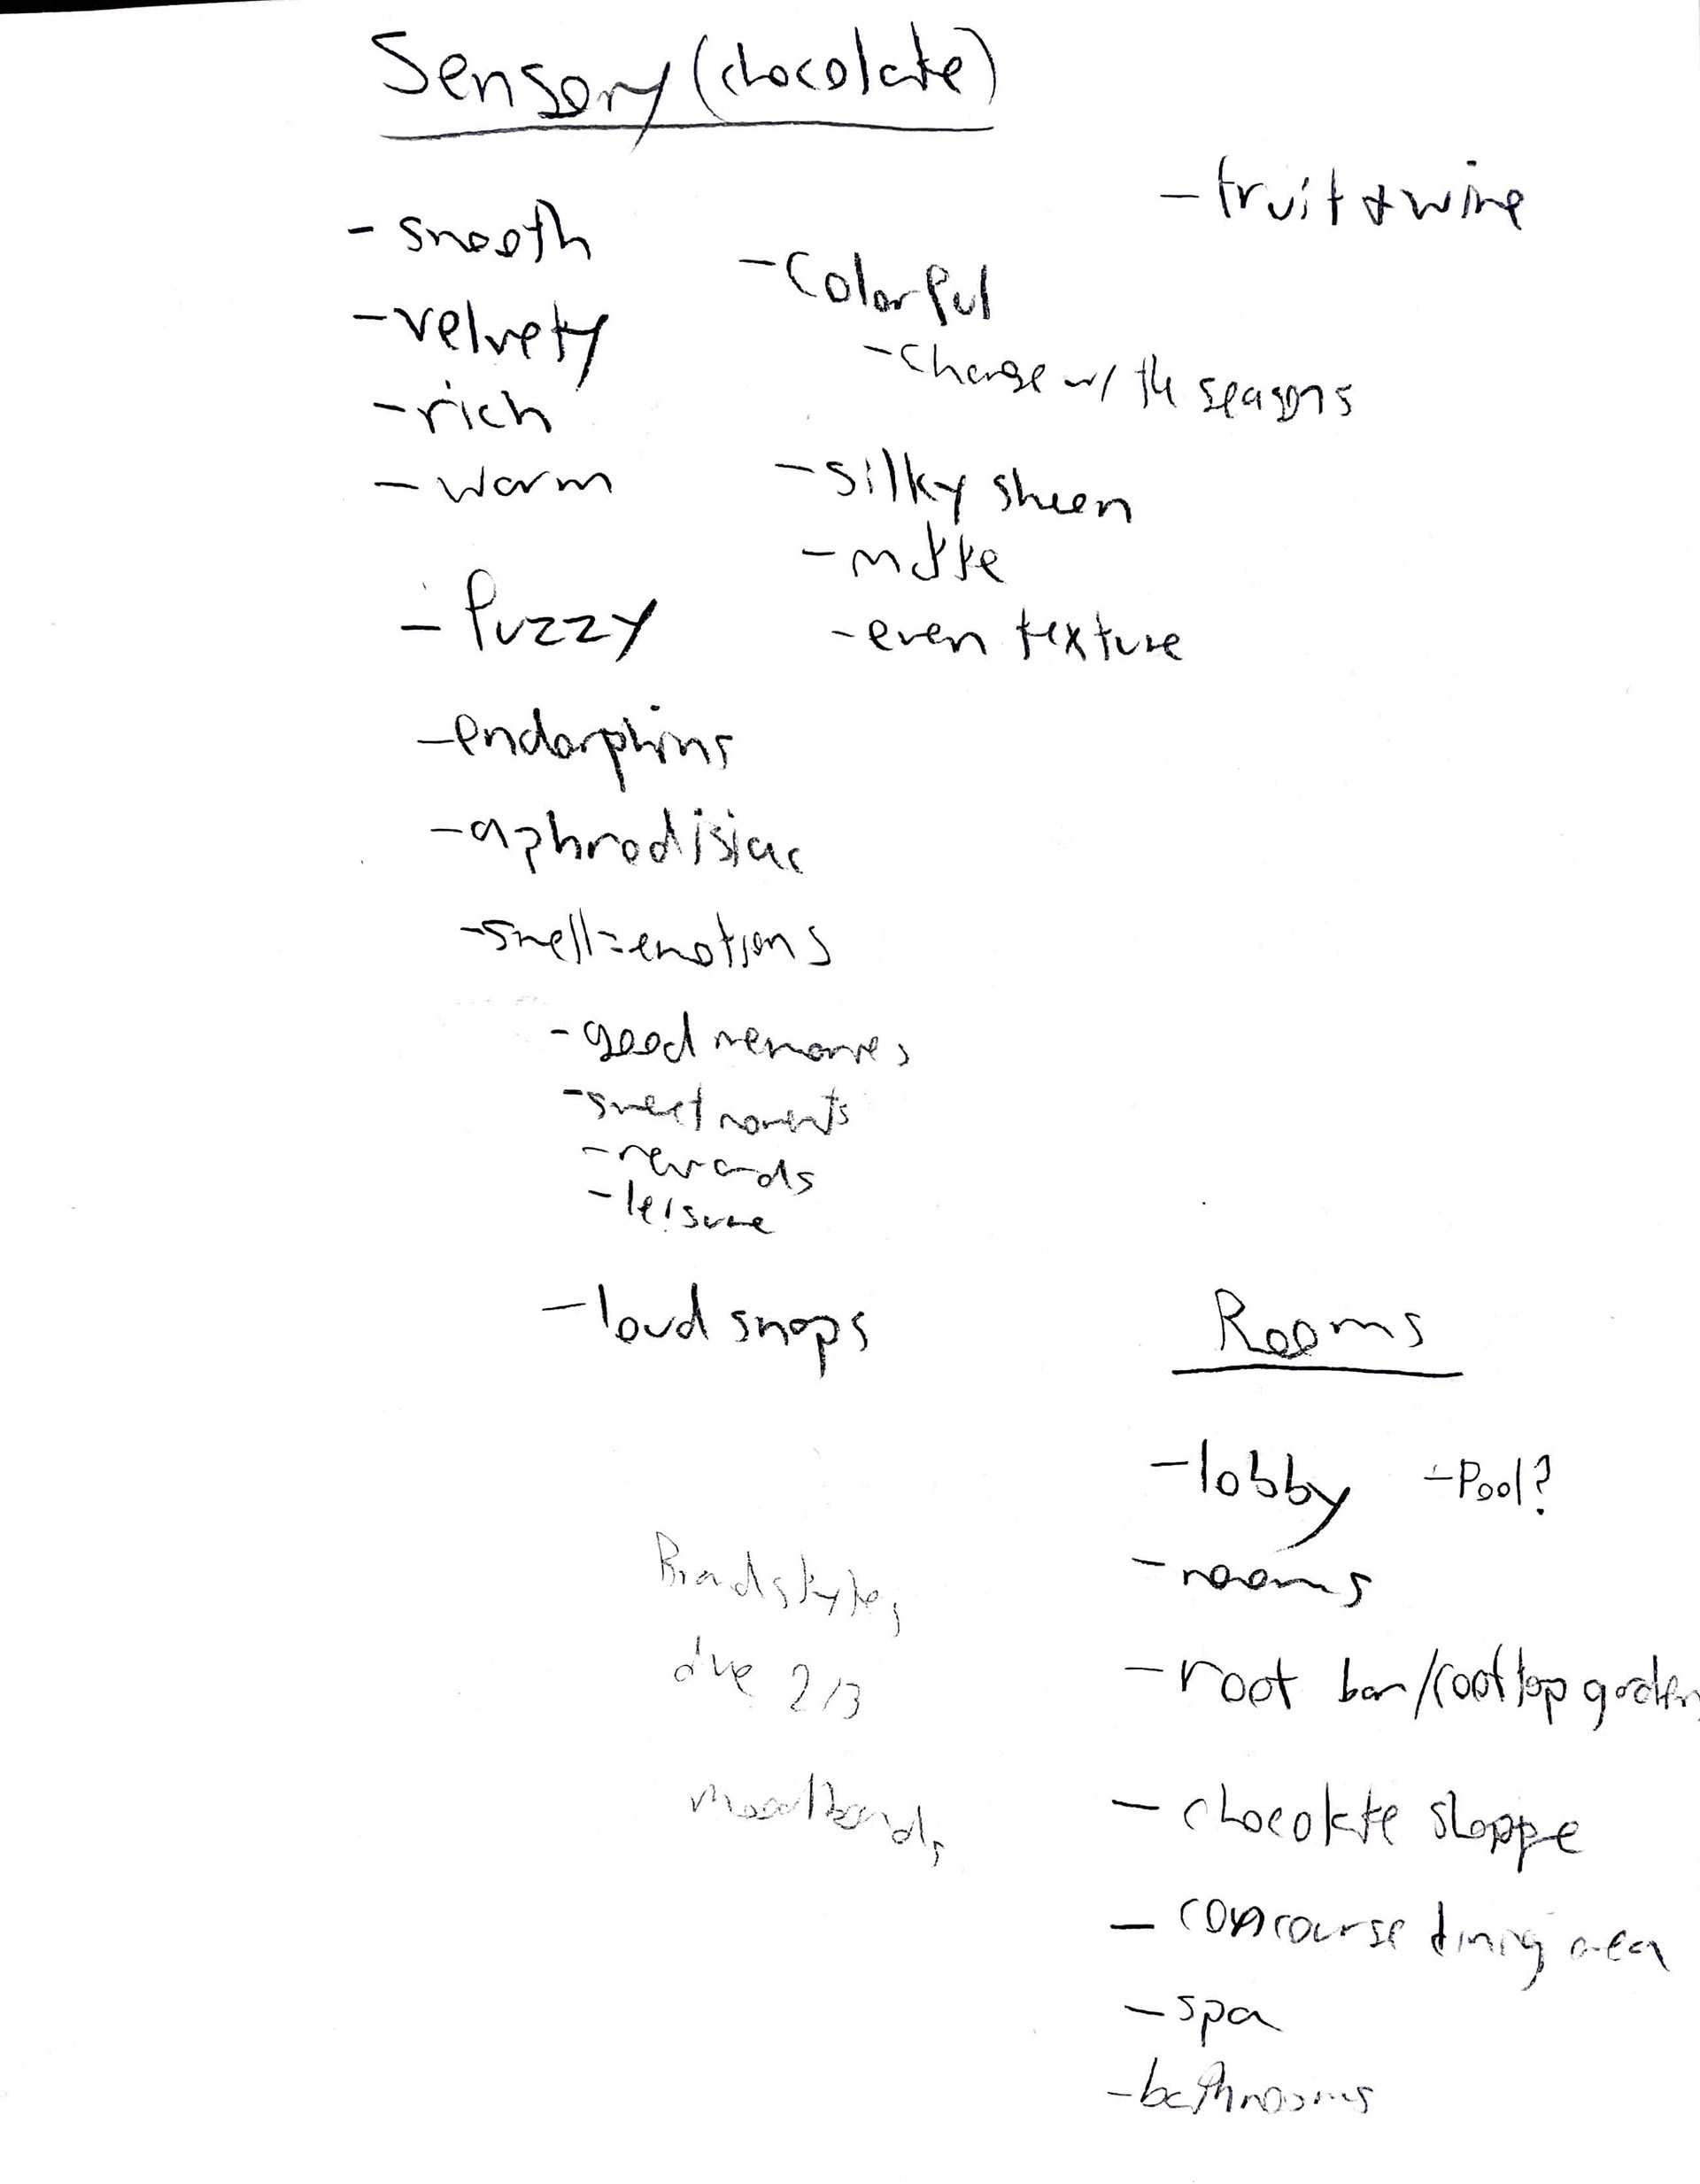 Sensory (chocolate)
- smooth
- velvety
- rich
- warm
- fuzzy
- endorphins
- aphrodisiac
- smell = emotions
- good memories
- sweet moments
- rewards
- leisure
- loud snaps
- colorful
- change w/ the seasons
- silky sheen
- matte
- even texture
- fruit & wine
due 2/3
moodboards
Rooms
- lobby - Pool?
- rooms
- roof bar/rooftop garden
- chocolate shoppe
- concourse dining area
- spa
- bathrooms